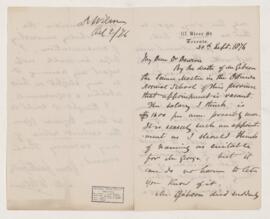 A Wilson
Oct 2/76
117 Bloor St
Toronto
30th Sept. 1876
My Dear Dr Dawson
By the death of Mr Gibson
the Science Master in the Ottawa
Normal School of this province
that appointment is vacant.
The salary I think, is
$1500 per ann. possibly more.
It is exactly such an appoint-
ment as I should think
of naming as suitable
for Mr George; but it
can do no harm to let
you know of it.
Mr Gibson died suddenly